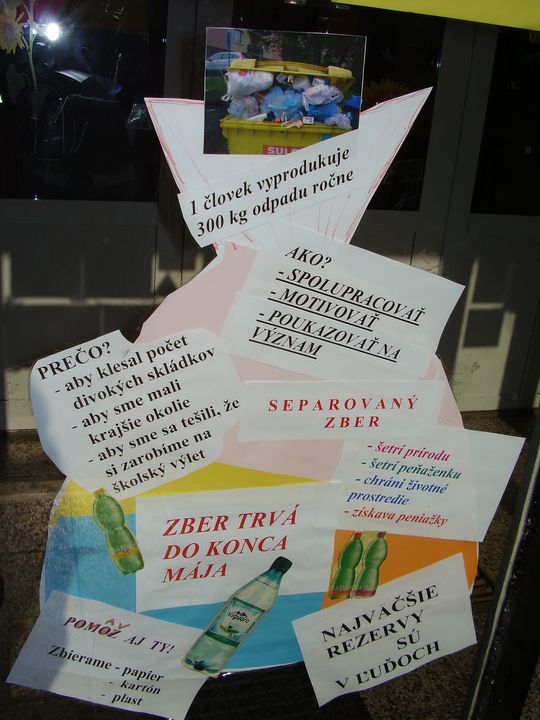 SULO
1 človek vyprodukuje
300 kg odpadu ročne
AKO?
- SPOLUPRACOVAŤ
- MOTIVOVAŤ
- POUKAZOVAŤ NA
VÝZNAM
PREČO?
- aby klesal počet
divokých skládkov
- aby sme mali
krajšie okolie
- aby sme sa tešili, že
si zarobíme na
školský výlet
SEPAROVANÝ
ZBER
- šetrí prírodu
- šetrí peňaženku
- chráni životné
prostredie
- získava peniažky
ZBER TRVÁ
DO KONCA
MÁJA
POMÔŽ AJ TY!
Zbierame - papier
- kartón
- plast
NAJVAČŠIE
REZERVY
SÚ
V ĽUĎOCH